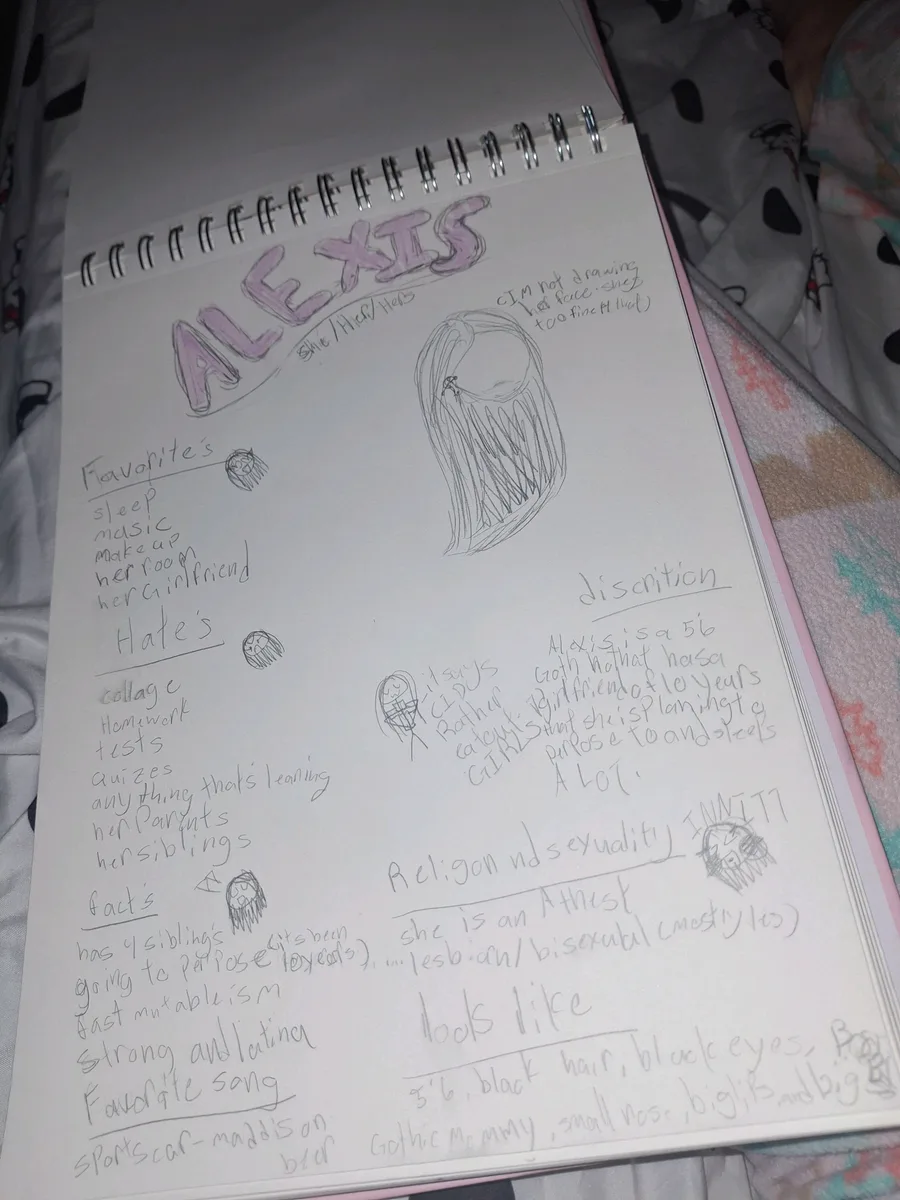 ALEXIS
she/Her/Hers
(IM not drawing
her face she's
too fine
Favorite's
sleep
music
makeup
her room
her Girlfriend
Hate's
collage
Homework
tests
quizes
any thing that's leaning
her Parents
her siblings
fact's
has 4 siblings
going to (its been
10 years)
strong and latina
Favorite song
sports car-maddison
beer
discrition
Alexis is a 5'6
Goth that has a
girlfriend of 10 years
that she is planing to
purpose to and sleeps
A LOT.
it says
Rather
eat
GIRLS
Religon nd sexuality
INNIT?
she is an Athest
...lesbian/bisexutal (mostry les)
looks like
5'6, black hair, black eyes,
Gothic mommy, small nose, big lips and big